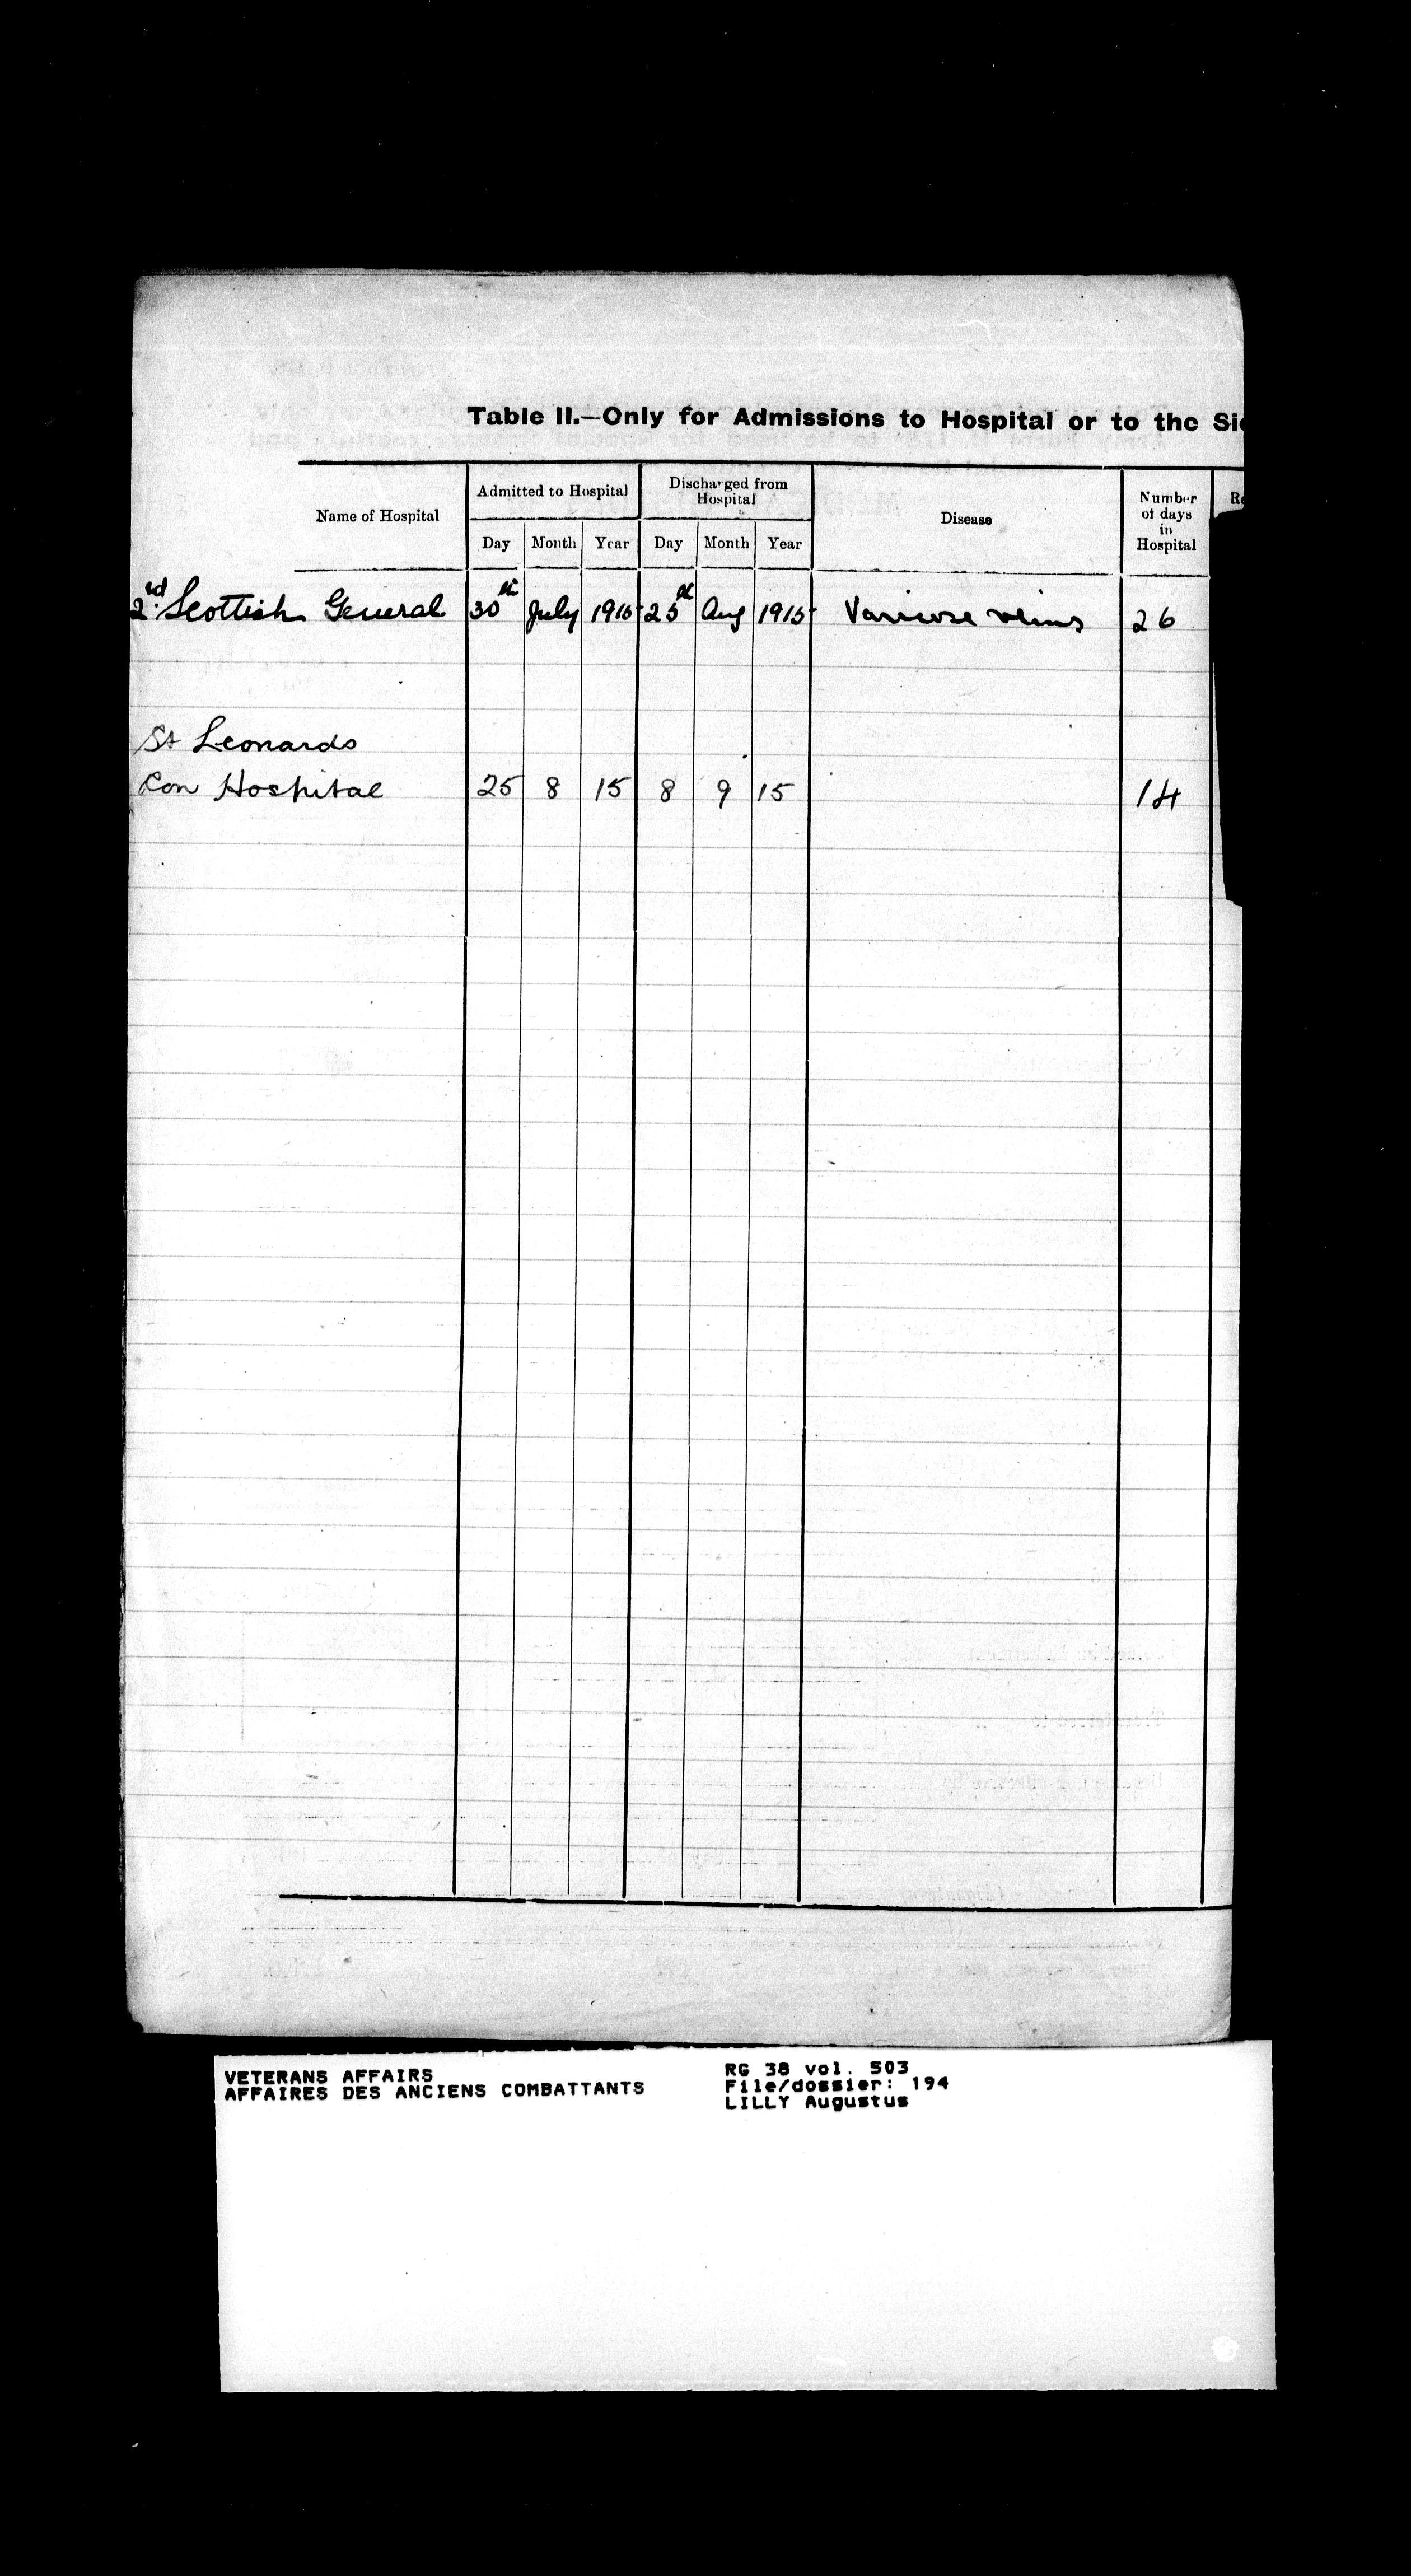 Table II.—Only for Admissions to Hospital or to the Sic
Name of Hospital
Admitted to Hospital
Discharged from Hospital
Disease
Number of days in Hospital
Re
Day Month Year Day Month Year
2nd Scottish General 30th July 1915 25th Aug 1915 Varicose veins 26
St Leonards
Con Hospital 25 8 15 8 9 15 14
VETERANS AFFAIRS
AFFAIRES DES ANCIENS COMBATTANTS
RG 38 vol. 503
File/dossier: 194
LILLY Augustus